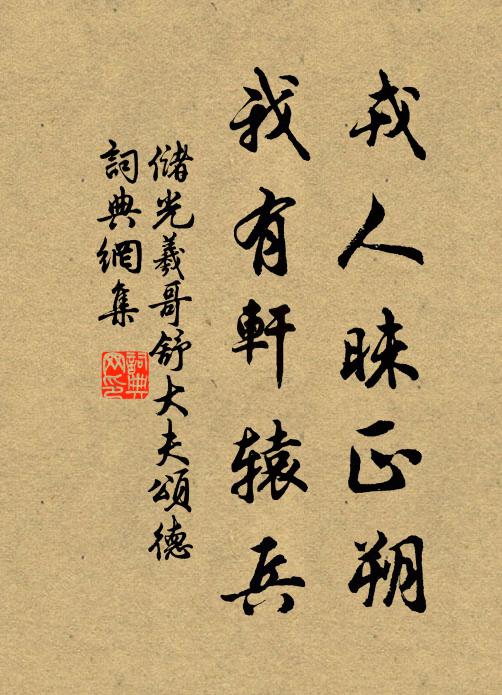 戎人昧正朔
我有軒辕兵
儲光羲哥舒大夫頌德
詞典網集
詞典网印